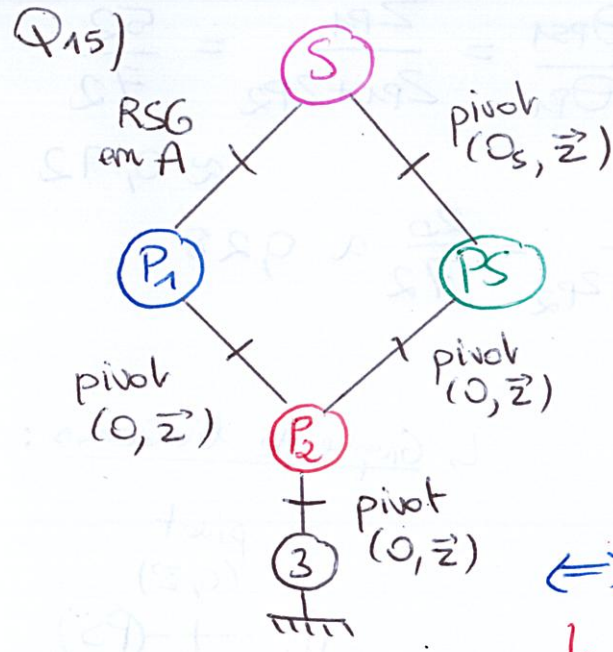 Q15)
S
RSG
en A
pivot
(Os, z⃗)
P1
PS
pivot
(O, z⃗)
pivot
(O, z⃗)
P2
pivot
(O, z⃗)
3
⇔